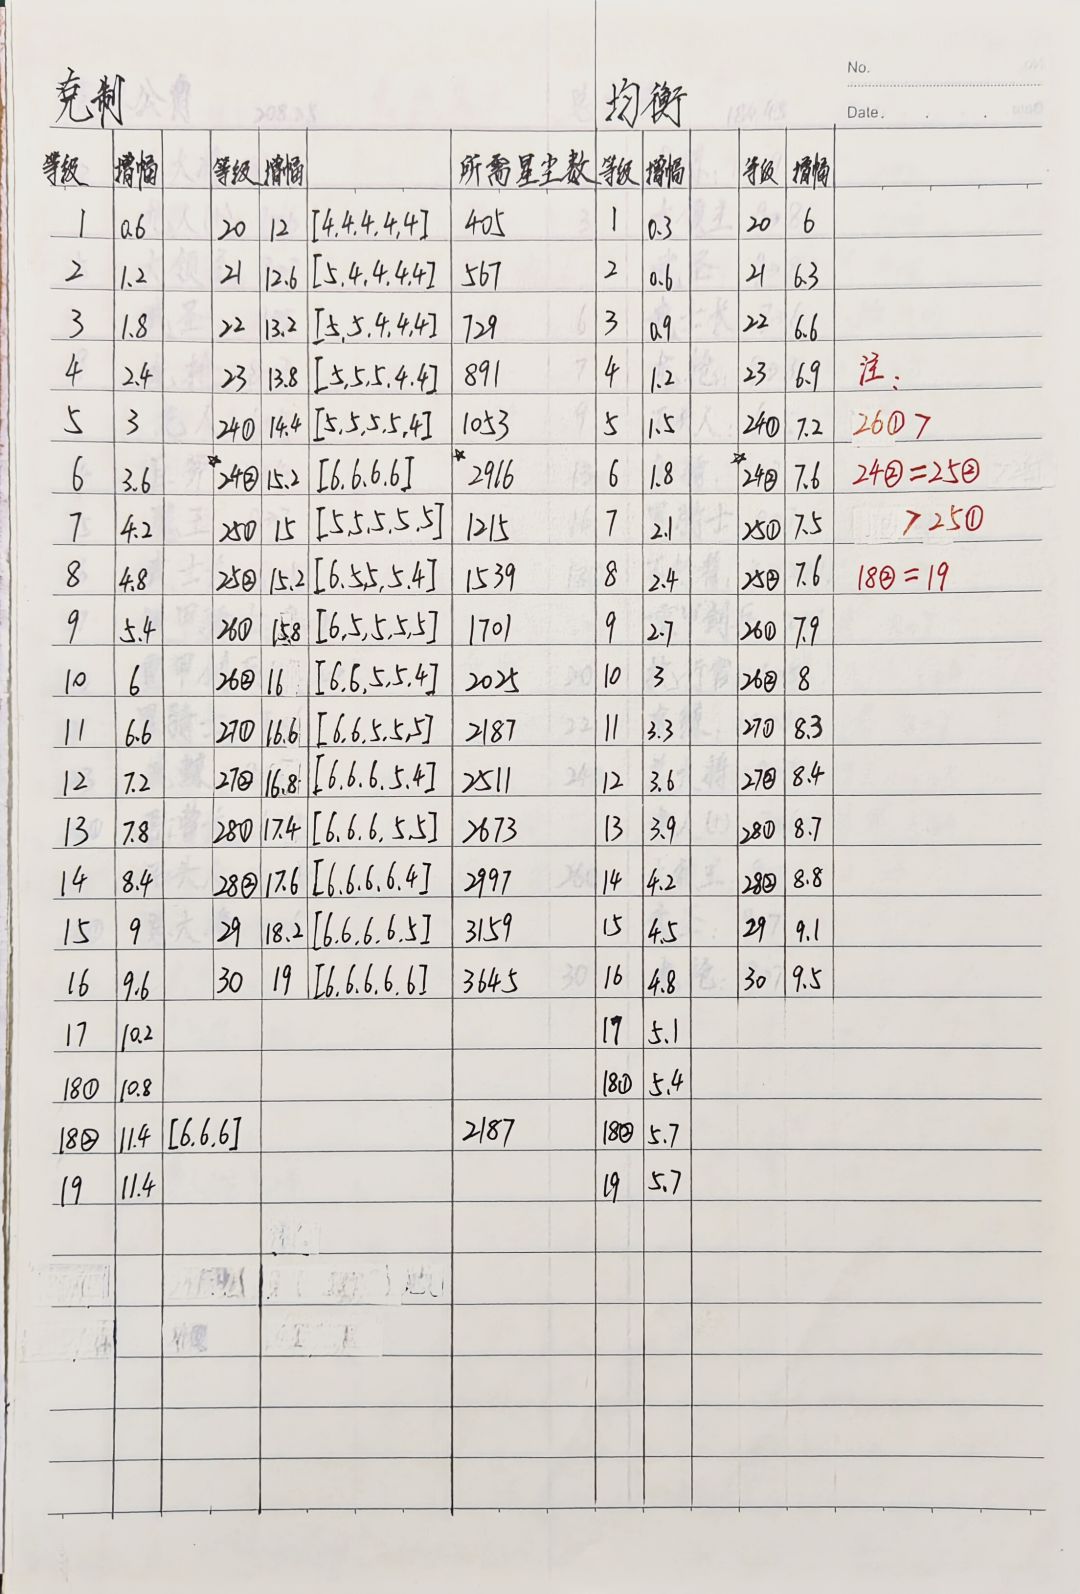 No.
克制 均衡 Date.
等级 增幅 等级 增幅 所需星尘数 等级 增幅 等级 增幅
1 0.6 20 12 [4.4.4.4.4] 405 1 0.3 20 6
2 1.2 21 12.6 [5.4.4.4.4] 567 2 0.6 21 6.3
3 1.8 22 13.2 [5.5.4.4.4] 729 3 0.9 22 6.6
4 2.4 23 13.8 [5.5.5.4.4] 891 4 1.2 23 6.9 注:
5 3 24① 14.4 [5.5.5.5.4] 1053 5 1.5 24① 7.2 26①>
6 3.6 ☆24② 15.2 [6.6.6.6] ☆2916 6 1.8 ☆24② 7.6 24②=25②
7 4.2 25① 15 [5.5.5.5.5] 1215 7 2.1 25① 7.5 >25①
8 4.8 25② 15.2 [6.5.5.5.4] 1539 8 2.4 25② 7.6 18②=19
9 5.4 26① 15.8 [6.5.5.5.5] 1701 9 2.7 26① 7.9
10 6 26② 16 [6.6.5.5.4] 2025 10 3 26② 8
11 6.6 27① 16.6 [6.6.5.5.5] 2187 11 3.3 27① 8.3
12 7.2 27② 16.8 [6.6.6.5.4] 2511 12 3.6 27② 8.4
13 7.8 28① 17.4 [6.6.6.5.5] 2673 13 3.9 28① 8.7
14 8.4 28② 17.6 [6.6.6.6.4] 2997 14 4.2 28② 8.8
15 9 29 18.2 [6.6.6.6.5] 3159 15 4.5 29 9.1
16 9.6 30 19 [6.6.6.6.6] 3645 16 4.8 30 9.5
17 10.2 17 5.1
18① 10.8 18① 5.4
18② 11.4 [6.6.6] 2187 18② 5.7
19 11.4 19 5.7